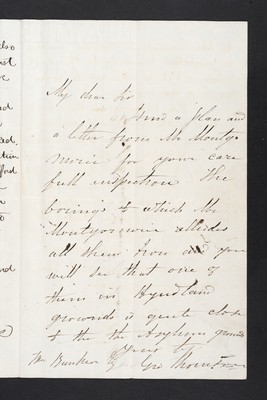 My dear Sir
I send a plan and
a letter from Mr Montgo-
merie for your care
full inspection The
borings to which Mr
Montgomerie alludes
all shew Iron and you
will see that one of
them in Hyndland
grounds is quite close
to the Asylum grounds
Yours
Wm Bunker
Geo Thomson
also